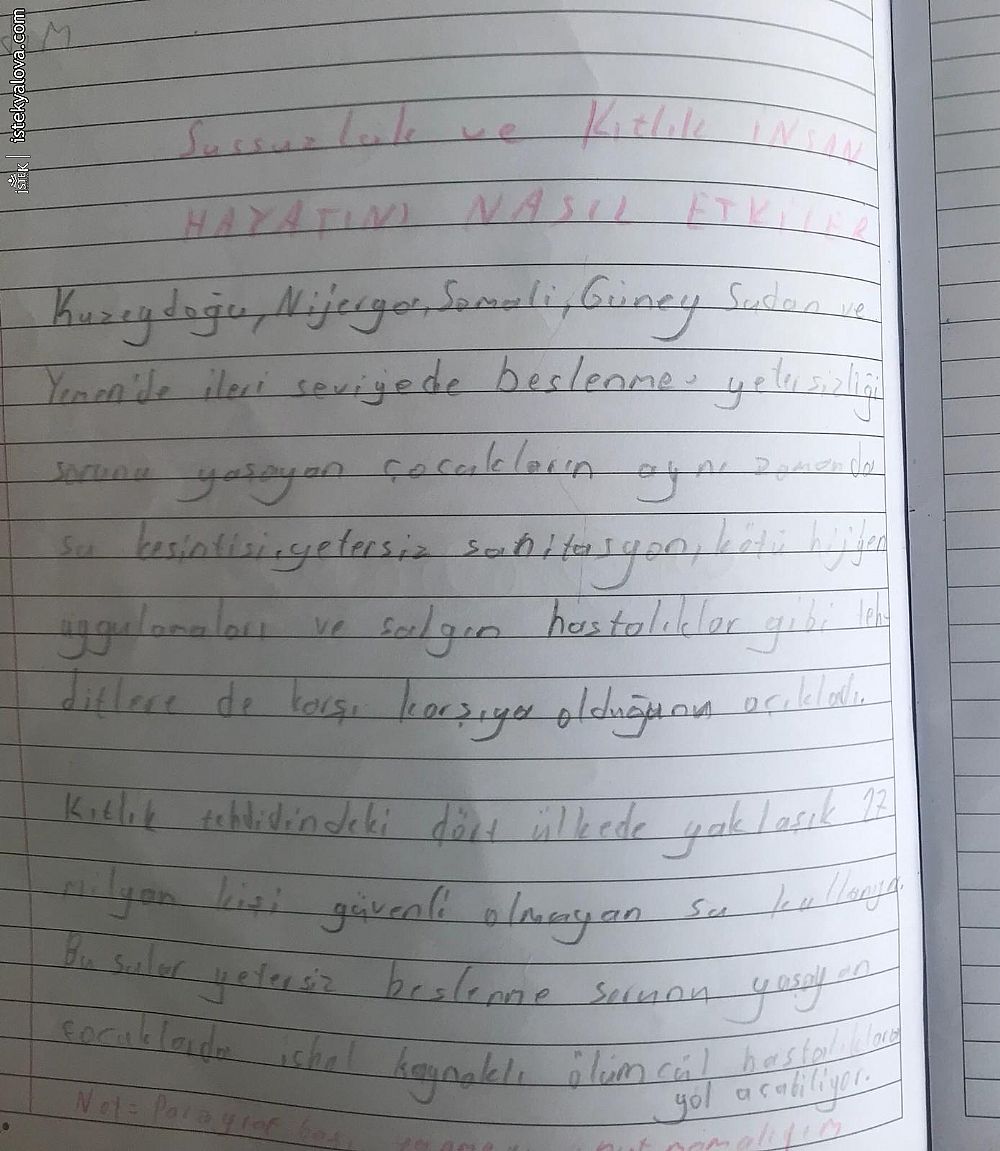 istekyalova.com
iSTEK
M
Sussuzluk ve Kıtlık iNSAN
HAYATINI NASIL ETKİLER
Kuzeydoğu, Nijerya, Somali, Güney Sudan ve
Yemen'de ileri seviyede beslenme yetersizliği
sorunu yaşayan çocukların aynı zamanda
su kesintisi, yetersiz sanitasyon, kötü hijyen
uygulamaları ve salgın hastalıklar gibi teh-
ditlere de karşı karşıya olduğunu açıkladı.
Kıtlık tehdidindeki dört ülkede yaklaşık 17
milyon kişi güvenli olmayan su kullanıyo.
Bu sular yetersiz beslenme sorunu yaşayan
çocuklarda ishal kaynaklı ölümcül hastalıklara
yol açabiliyor.
Not= Paragraf başı unutmamalıyım